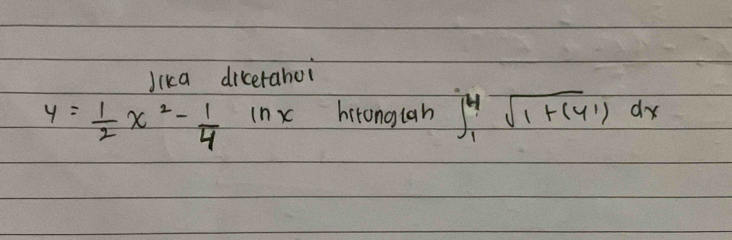 Jika diketahui
y = 1/2 x² - 1/4 ln x hitunglah ∫₁⁴ √(1+(y')) dx